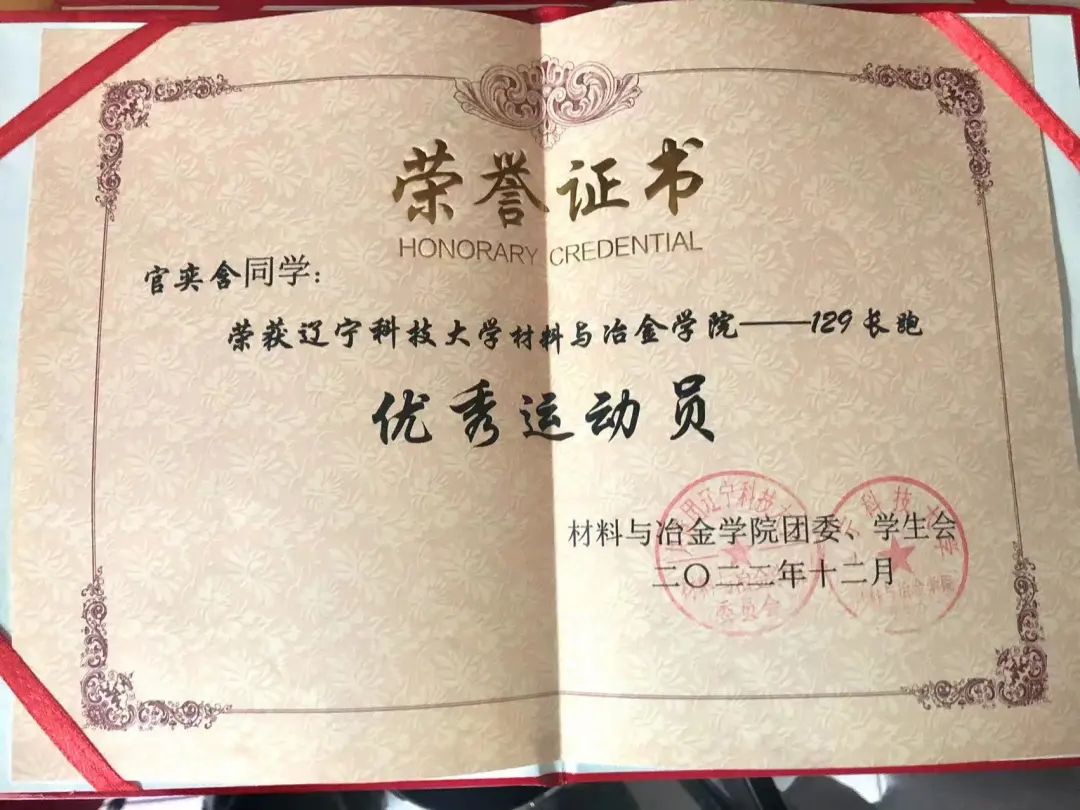 荣誉证书
HONORARY CREDENTIAL
官奕含同学：
荣获辽宁科技大学材料与冶金学院——129长跑
优秀运动员
材料与冶金学院团委、学生会
二〇二二年十二月
辽宁科技
委员会
科技大学
材料与冶金学院